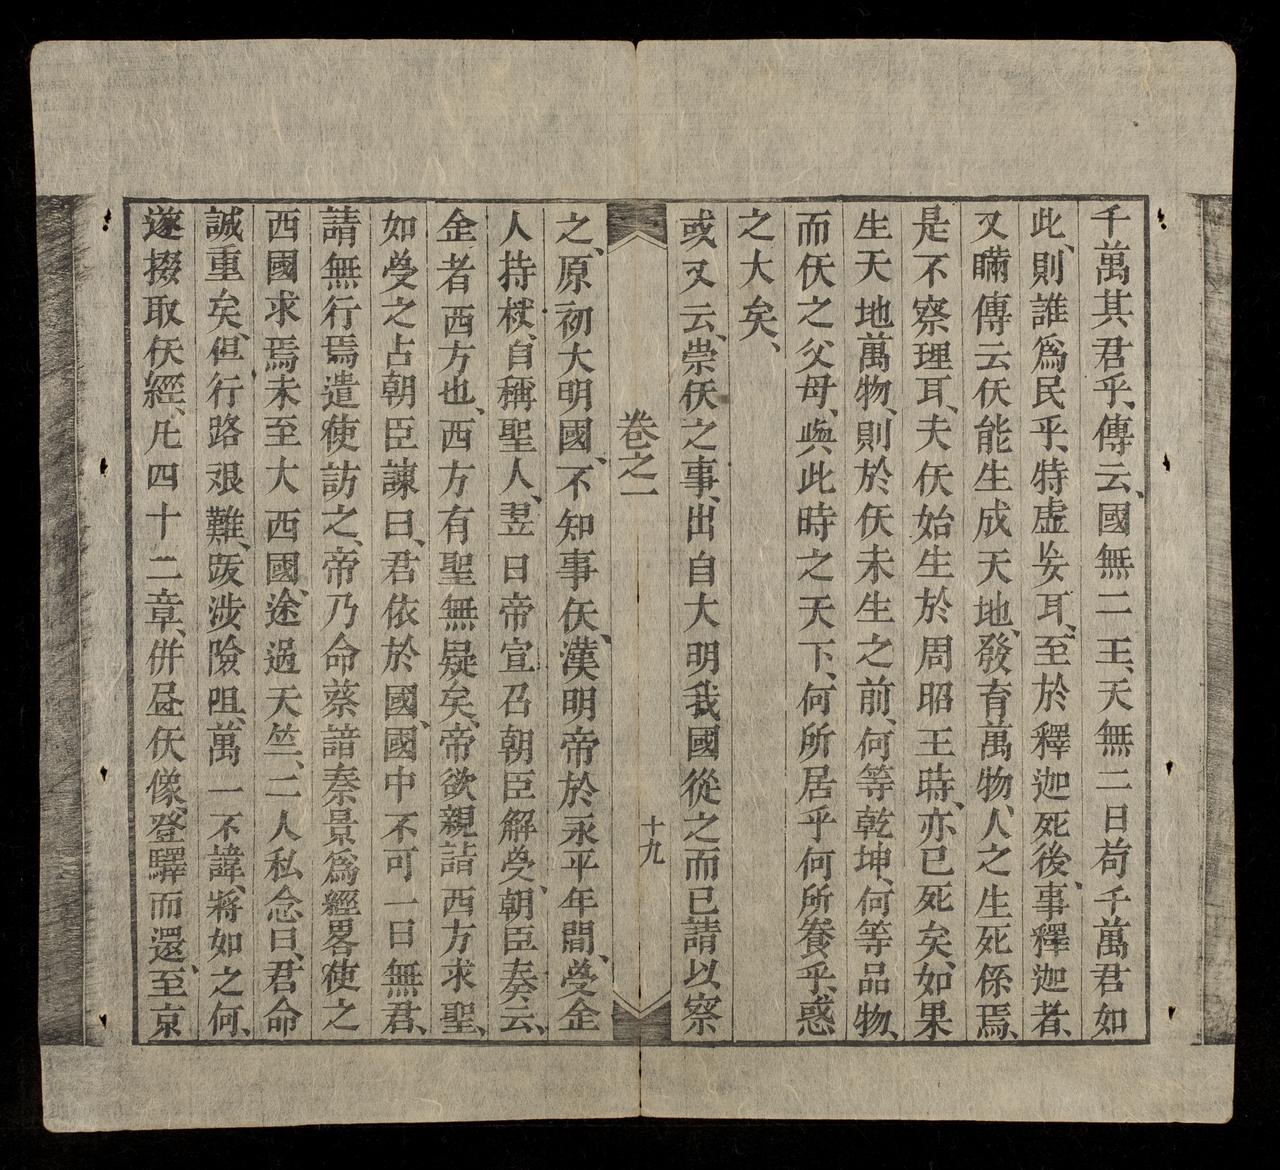 千萬其君乎、傳云、國無二王、天無二日、苟千萬君如
此、則誰爲民乎、特虛妄耳、至於釋迦死後、事釋迦者、
又瞞傳云仸能生成天地、發育萬物、人之生死係焉、
是不察理耳、夫仸始生於周昭王時、亦已死矣、如果
生天地萬物、則於仸未生之前、何等乾坤、何等品物、
而仸之父母、與此時之天下、何所居乎何所養乎、惑
之大矣、
或又云、崇仸之事、出自大明我國從之而已請以察
卷之一
十九
之、原初大明國、不知事仸、漢明帝於永平年間、㝱金
人持杖、自稱聖人、翌日帝宣召朝臣解㝱、朝臣奏云、
金者西方也、西方有聖無疑矣、帝欲親詣西方求聖、
如㝱之占朝臣諫曰、君依於國、國中不可一日無君、
請無行焉遣使訪之、帝乃命蔡諳秦景爲經畧使之
西國求焉未至大西國、途過天竺、二人私念曰、君命
誠重矣、但行路艱難、跋涉險阻、萬一不諱、將如之何、
遂掇取仸經、凡四十二章、併畫仸像、登驛而還、至京